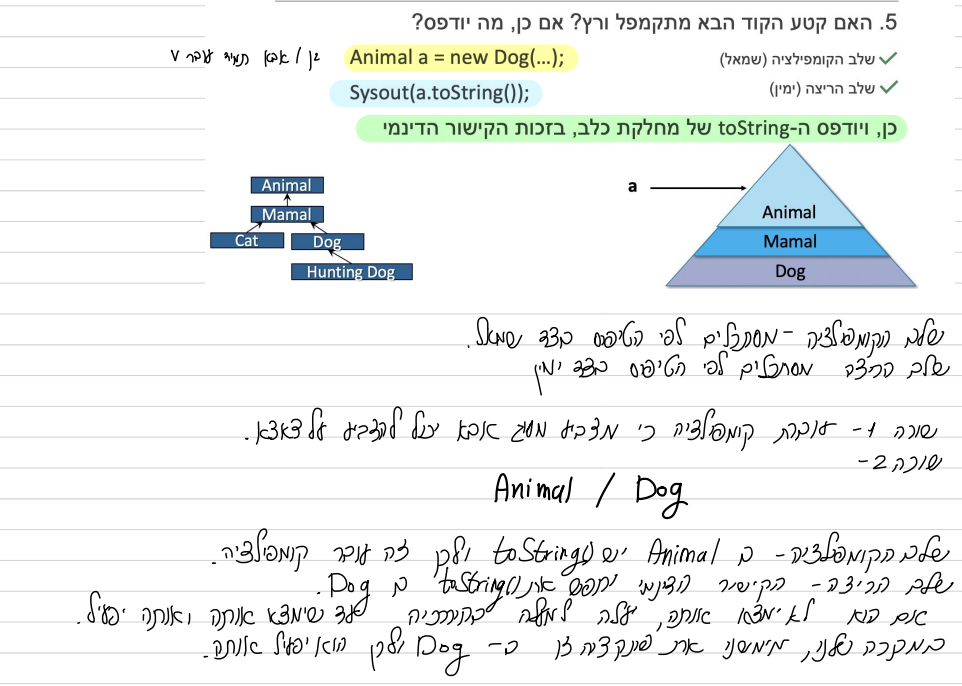 5. האם קטע הקוד הבא מתקמפל ורץ? אם כן, מה יודפס?
שלב הקומפילציה (שמאל)
Animal a = new Dog(...);
כן / אבא תמיד עובר V
שלב הריצה (ימין)
Sysout(a.toString());
כן, ויודפס ה-toString של מחלקת כלב, בזכות הקישור הדינמי
a
Animal
Mamal
Dog
Animal
Mamal
Cat
Dog
Hunting Dog
שלב הקומפילציה - מסתכלים לפי הטיפוס בצד שמאל.
שלב הריצה מסתכלים לפי הטיפוס בצד ימין
שורה 1 - עוברת קומפילציה כי מצביע מסוג אבא יכול להצביע על צאצא.
שורה 2 -
Animal / Dog
שלב הקומפילציה - ב Animal יש toString() ולכן זה עובר קומפילציה.
שלב הריצה - הקישור הדינמי יחפש את toString() ב Dog.
אם הוא לא ימצא אותה, יעלה למעלה בהיררכיה עד שימצא אותה ואותה יפעיל.
במקרה שלנו, מימשנו את פונקציה זו ב- Dog ולכן הוא יפעיל אותה.